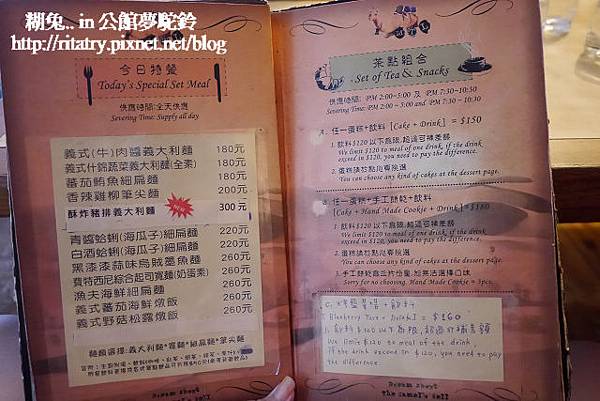 糊兔.. in 公館夢駝鈴
http://ritatry.pixnet.net/blog
今日特餐
Today's Special Set Meal
供應時間:全天供應
Severing Time: Supply all day
義式(牛)肉醬義大利麵 180元
義式什錦蔬菜義大利麵(全素) 180元
蕃茄鮪魚細扁麵 180元
香辣雞柳筆尖麵 200元
酥炸豬排義大利麵 300元
青醬蛤蜊(海瓜子)細扁麵 220元
白酒蛤蜊(海瓜子)細扁麵 220元
黑漆漆蒜味烏賊墨魚麵 260元
費特西尼綜合起司寬麵(奶蛋素) 260元
漁夫海鮮細扁麵 260元
義式蕃茄海鮮燉飯 260元
義式野菇松露燉飯 260元
麵類選擇:義大利麵*寬麵*細扁麵*筆尖麵
Dream about
The camel's bell
茶點組合
Set of Tea & Snacks
供應時間: PM 2:00~5:00 及 PM 7:30~10:30
Severing Time: PM 2:00 ~ 5:00 and PM 7:30 ~ 10:30
A. 任一蛋糕+飲料 [Cake + Drink] = $150
1. 飲料$120以下為限,超過可補差額
We limit $120 to meal of one drink, if the drink
exceed in $120, you need to pay the difference.
2. 蛋糕請於點心專候選
You can choose any kind of cakes at the dessert page.
B. 任一蛋糕+手工餅乾+飲料
[Cake + Hand Made Cookie + Drink] =
1. 飲料$120以下為限,超過可補差額
We limit $120 to meal of one drink, if the drink
exceed in $120, you need to pay the difference.
You can choose any kind of cakes at the dessert page.
Sorry for no choosing. Hand Made Cookie = 3pcs.
Blueberry Tart + Drink] = $160
We limit $120 to meal of one drink.
if the drink exceed in $120, you need to pay
the difference
Dream about
The camel's bell